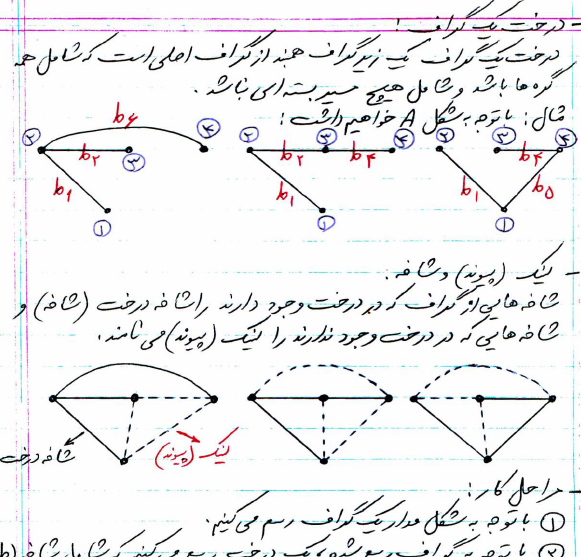 - درخت یک گراف :
درخت یک گراف یک زیر گراف همبند از گراف اصلی است که شامل همه
گره ها باشد و شامل هیچ مسیر بسته ای نباشد .
مثال : با توجه به شکل A خواهیم داشت :
b۶
۲ b۲ ۳ ۴ b۱ ۱
۲ b۲ ۳ b۴ ۴ b۱ ۱
۲ ۳ b۴ ۴ b۱ b۵ ۱
- لینک (پیوند) و شاخه :
شاخه هایی از گراف که در درخت وجود دارند را شاخه درخت (شاخه) و
شاخه هایی که در درخت وجود ندارند را لینک (پیوند) می نامند .
شاخه درخت
لینک (پیوند)
- مراحل کار :
۱ با توجه به شکل مدار یک گراف رسم می کنیم .
۲ با توجه به گراف رسم شده یک درخت رسم می کنیم که شامل شاخه (b